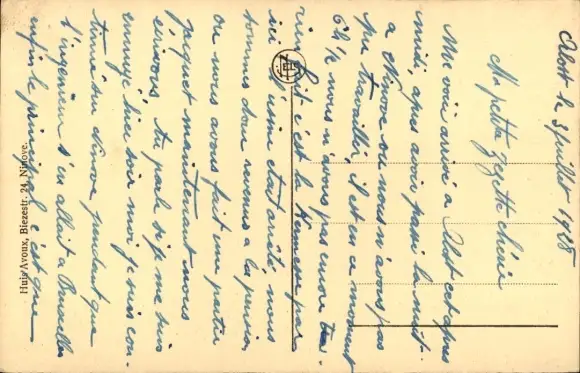 Alost le 8 juillet 1928
Ma petite Zezette chérie
Me voici arrivé a Alost cet apres
midi, apres avoir passé la nuit
a Ninove ou nous n'avons pas
pu travailler, il est en ce moment
6 h ½ nous n'avons pas encore
rien fait c'est la Kermesse par
ici l'usine etait arêté, nous
sommes donc revenus a la pension
ou nous avons fait une partie
piquet maintenant nous
ecrivons. tu parle si je me suis
ennuyé hier soir moi je suis con-
tinué sur Ninove pendant que
l'ingenieur s'en allait a Bruxelles
enfin le principal c'est que
Huis Avoux, Biezestr. 24, Ninove.